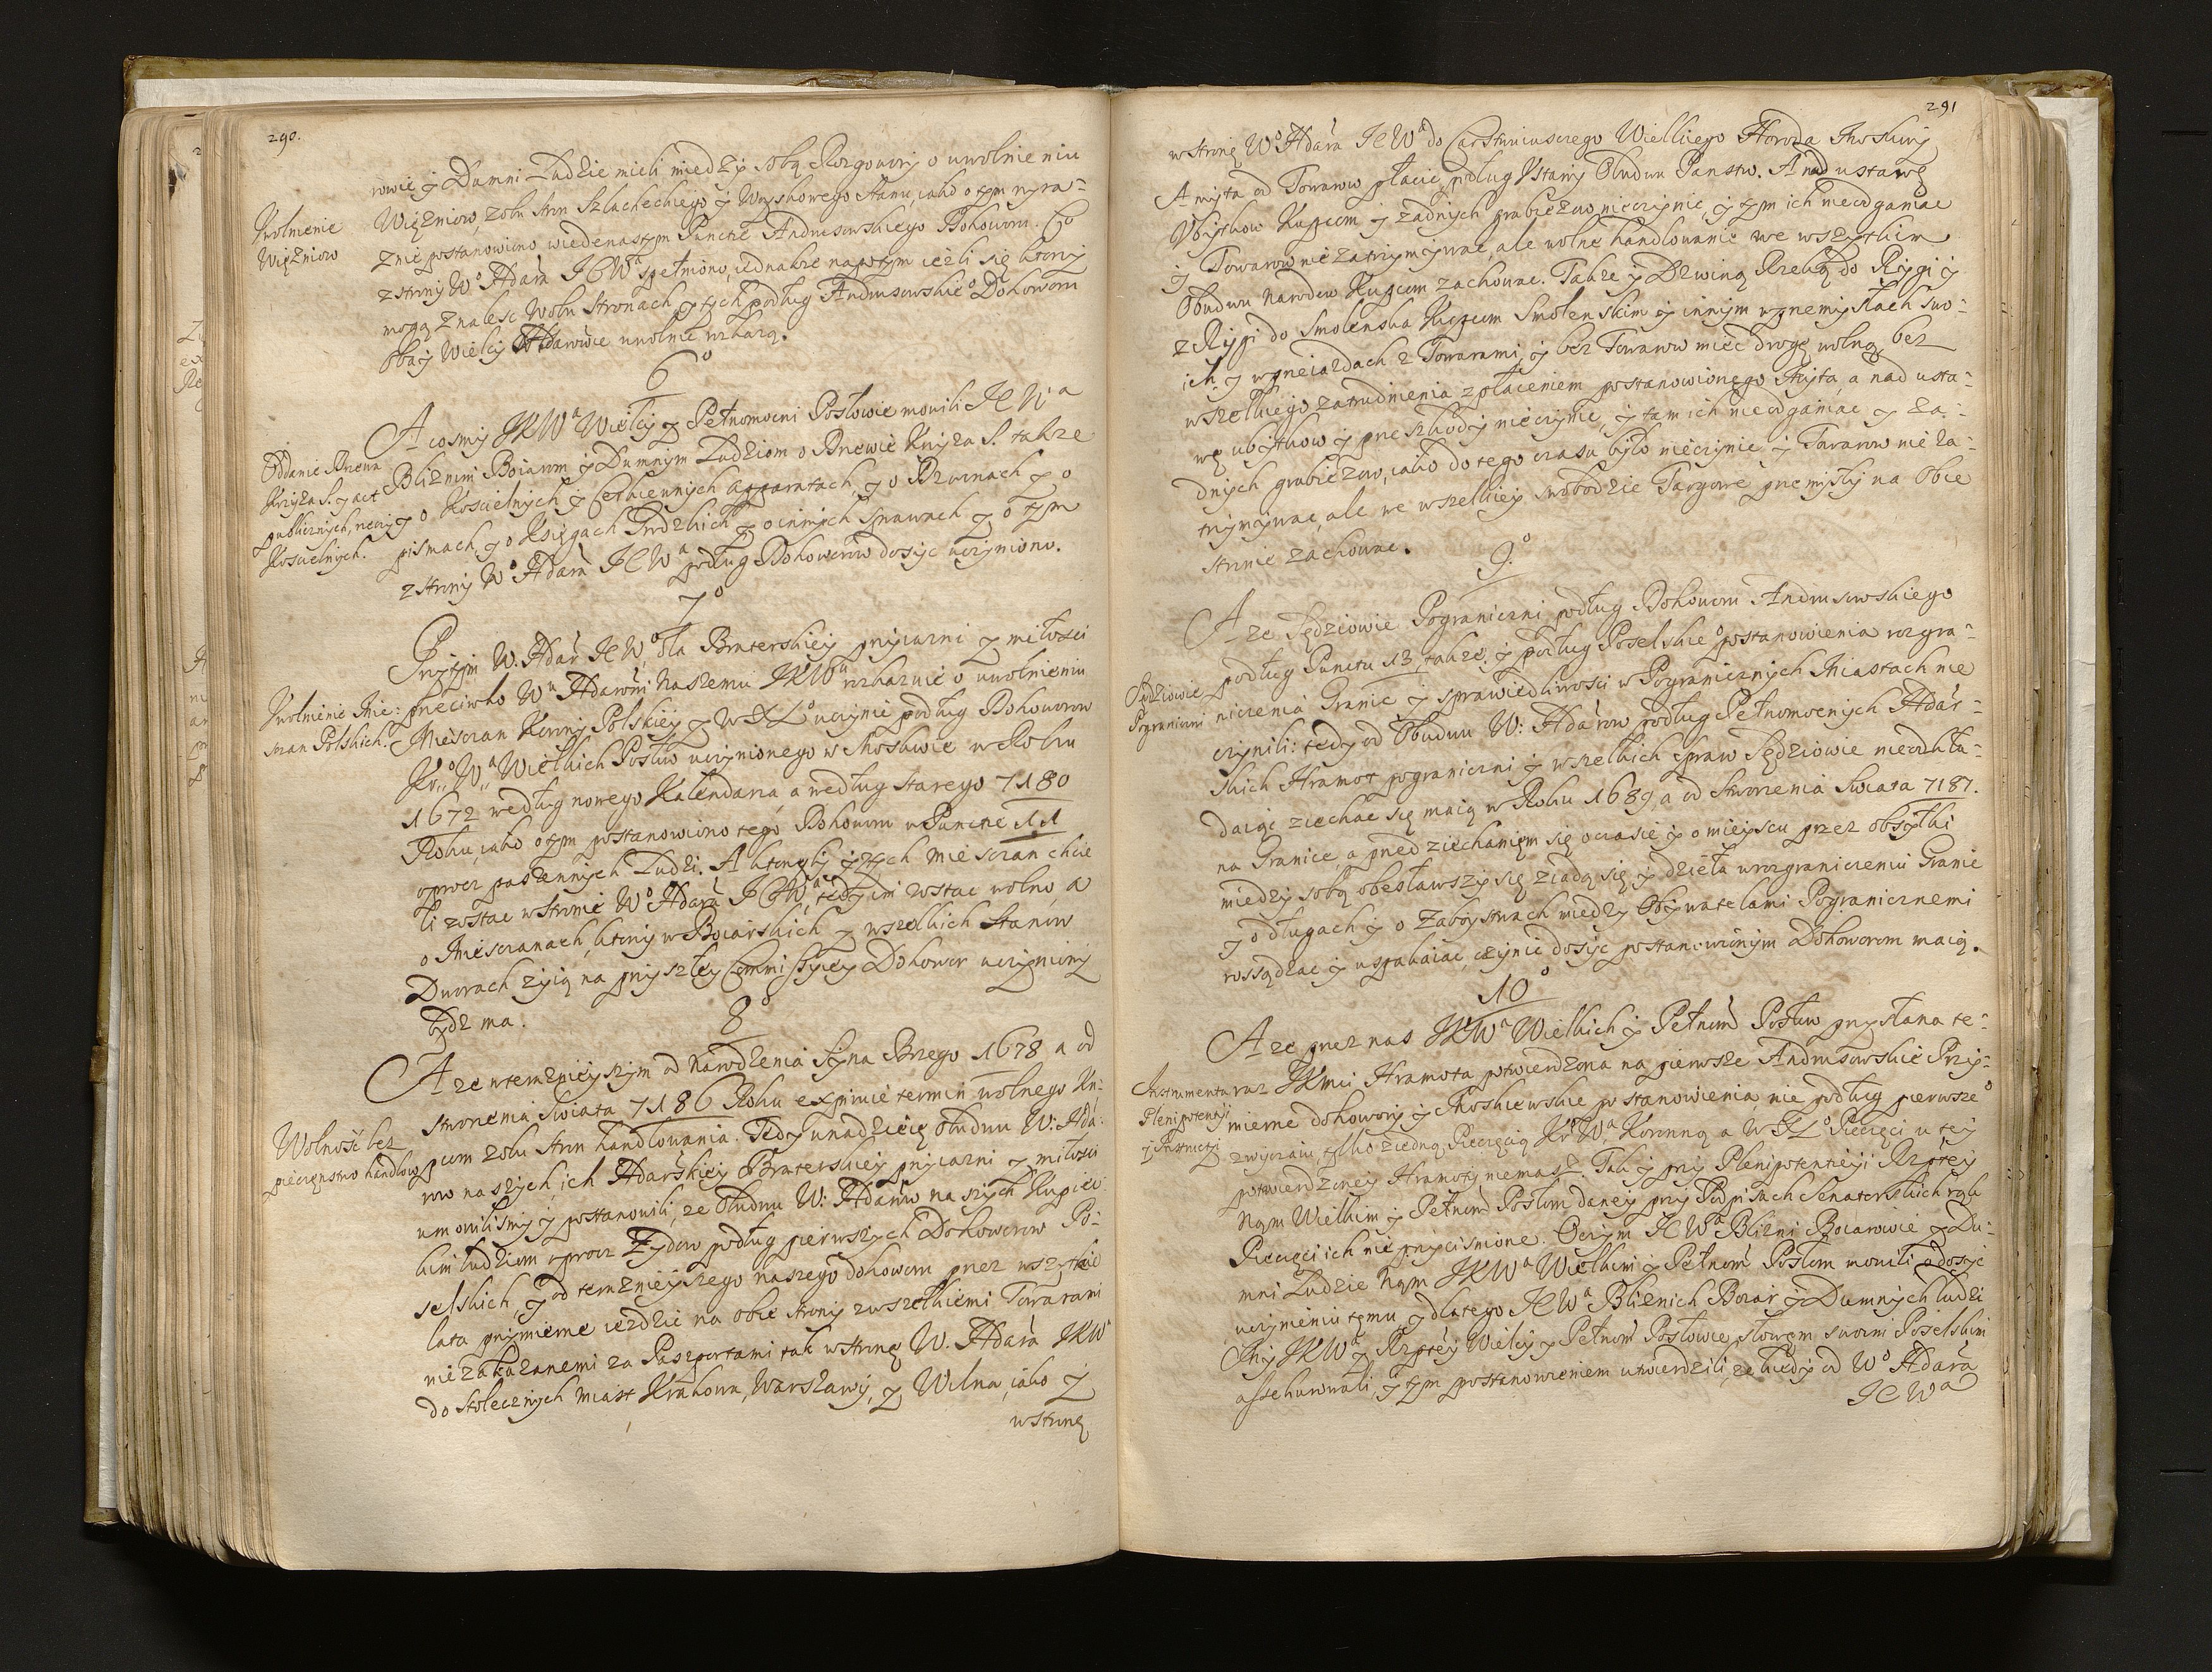 290.
rowie y Dumni Ludzie mieli miedzy sobą Rozgowory o uwolnieniu
Więzniow, zobu stron Szlacheckiego y Woyskowego stanu, iako o tym wyra-
znie postanowiono wiedenastym Punctcie Andruszowskiego Dohoworu. Co
z strony Wo Hdara JCWa spełniono, iednakze napotym iezli się ktorzy
mogą znalesc wobu stronach y tych podług Andruszowskieo Dohoworu
Obay Wielcy Hdarowie uwolnic rzkazą.
Uwolnienie
Więzniow
6o
A cosmy JKWa Wielcy y Pełnomocni Posłowie mowili JCWa
Bliznim Boiarom y Dumnym Ludziom o Drzewie Krzyza S. takze
y o Koscielnych y Cerkiewnych apparatach, y o Dzwonach y o
pismach, y o Xsięgach Grodzkich y o innych sprawach y o tym
z strony Wo Hdara JCWa podług Dohoworow dosyc uczyniono.
Oddanie Drzewa
Krzyza S. y act
publicznych, rzeczy
Koscielnych.
7o
Przytym W. Hdar JCWo dla Braterskiey przyiazni y miłosci
przeciwko Wu Hdarowi naszemu JKWu rzkazuie o uwolnieniu
Miesczan Korony Polskiey y WXLo uczynic podług Dohoworow
Kro Wa Wielkich Posłow uczynionego w Moskwie w Roku
1672 według nowego Kalendarza, a według starego 7180
Roku, iako o tym postanowiono tego Dohoworu w Puncie 11
oprocz paszennych Ludzi. A ktorzyby z tych Miesczan chcie
li zostac w stronie Wo Hdara JCWa, tedy im zostac wolno, a
o Miesczanach, ktorzy w Boiarskich y wszelkich Stanow
Dworach zyią na przyszłey Commissyiey Dohowor uczyniony
bydz ma.
Uwolnienie Mie:
sczan Polskich.
8o
A ze w temznieyszym od Narodzenia Syna Bozego 1678 a od
stworzenia Swiata 7186 Roku expiruie termin wolnego Ku-
pcom zobu stron handlowania. Tedy w nadzieię Obudwu W: Hda:
row naszych, ich Hdarskiey Braterskiey przyiazni y miłosci
umowilismy y postanowili, ze Obudwu W: Hdarow naszych Kupiec
kim ludziom oprocz Zydow podług pierwszych Dohoworow Po-
selskich, y od temznieyszego naszego dohoworu przez wszytkie
lata przymierne iezdzic na obie strony z wszelkiemi Towarami
nie zakazanemi za Paszportami tak w stronę W. Hdara JKWa
do stołecznych Miast Krakowa, Warszawy, y Wilna, iako y
w stronę
Wolność bez
pieczenstwo handlow
291
w stronę Wo Hdara JCWa do Carstwuiusczego Wielkiego Horoda Moskwy
A myta od Towarow płacic podług Ustawy Obudwu Panstw. A nad ustawę
Ubytkow Kupcom y zadnych grabiezow nieczynic, y tym ich nieodganiac
y Towarow nie zatrzymywac, ale wolne handlowanie we wszytkim
Obudwu Narodow Kupcom zachowac. Takze y Dzwiną Rzeką do Rygi y
z Rygi do Smolenska Kupcom Smolenskim y innym w przemysłach swo-
ich, y w przeiazdach z Towarami, y bez Towarow miec drogę wolną, bez
wszelkiego zatrudnienia z płaceniem postanowionego Myta, a nad usta-
wę ubytkow y przeszkody nieczynic, y tam ich nieodganiac y za-
dnych grabiezow, iako do tego czasu było nieczynic y Towarow nie za-
trzymywac, ale we wszelkiey swobodzie Targowe przemysły na Obie
stronie zachowac.
9o
A ze Sędziowie Pograniczni podług Dohoworu Andruszowskiego
podług Punctu 13, takze, y podług Poselskieo postanowienia rozgra-
niczenia Granic y sprawiedliwosci w Pogranicznych Miastach nie
czynili: tedy od Obudwu W: Hdarow podług Pełnomocnych Hdar-
skich Hramot pograniczni y wszelkich spraw Sędziowie nieodkła-
daiąc ziechac się maią w Roku 1689, a od stworzenia Swiata 7187.
na Granice, a przed ziechaniem się o czasie y o mieyscu przez obsyłki
miedzy sobą obesławszy się ziadą się y dzieła w rozgraniczeniu Granic
y o długach y o zaboystwach miedzy Obywatelami Pogranicznemi
rossądzac y uspakaiac, czynic dosyc postanowionym Dohoworom maią.
Sędziowie
Pograniczni
10o
A ze przez nas JKWa Wielkich y Pełnom Posłow przysłana te-
raz JKMci Hramota potwierdzona na pierwsze Andruszowskie Przy-
mierne dohowory y Moskiewskie postanowienia, nie podług pierwszeo
zwyczaiu, tylko z iedną Pieczęcią Kro Wa, Koronną a WXLo Pieczęci u tey
potwierdzoney Hramoty niemasz. Tak y przy Plenipotentiyi Rzptey
Nam Wielkim y Pełnom Posłom daney przy Podpisach Senatorskich rąk
Pieczęci ich nie przycisnione. Oczym JCWa Blizni Boiarowie y Du-
mni Ludzie Nam JKWa Wielkim y Pełnom Posłom mowili o dosyc
uczynieniu temu, y dlatego JCWa Bliznich Boiar y Dumnych ludzi
My JKWa y Rzptey Wielcy y Pełnom Posłowie słowem swoim Poselskim
assekurowali, y tym postanowieniem utwierdzili, ze kiedy od Wo Hdara
JCWa
Instrumenta
Plenipotentyi
y Instructyi